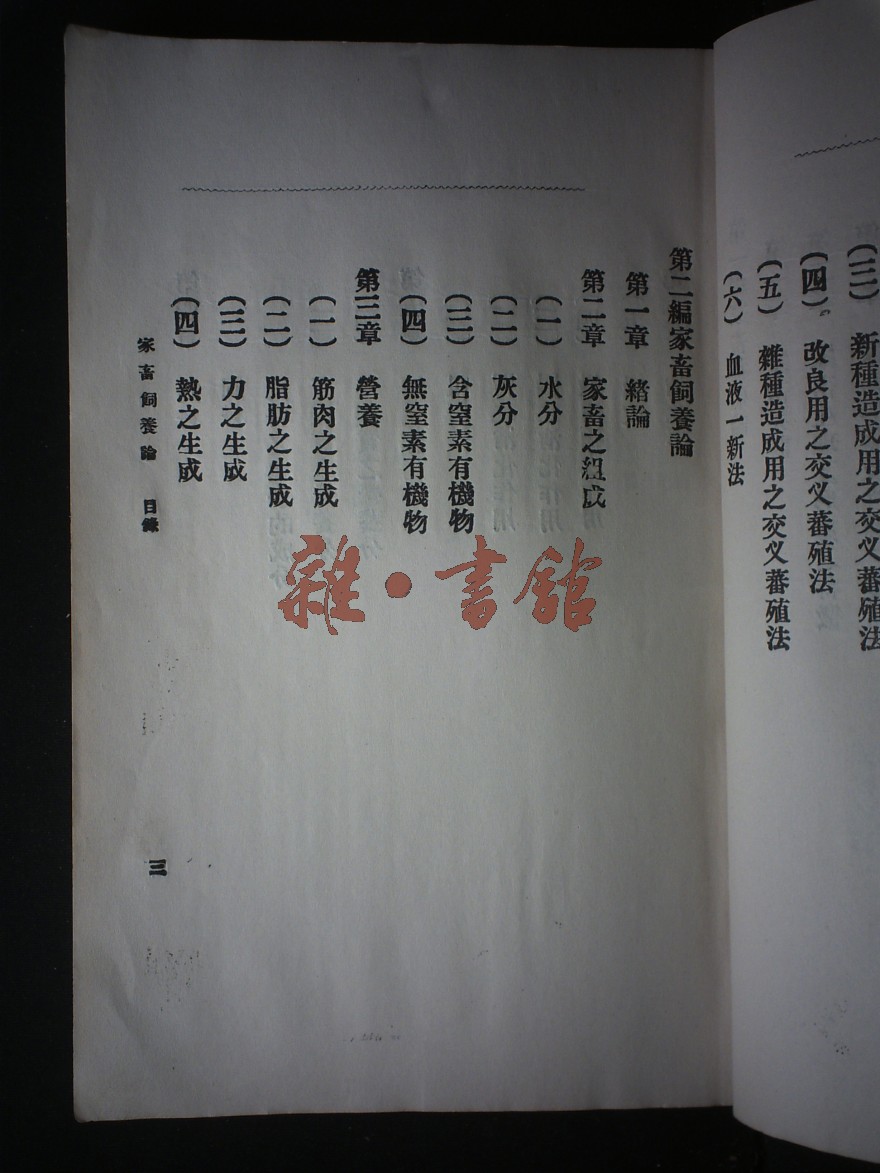 (三) 新種造成用之交义蕃殖法
(四) 改良用之交义蕃殖法
(五) 雜種造成用之交义蕃殖法
(六) 血液一新法
第二編家畜飼養論
第一章 緒論
第二章 家畜之組成
(一) 水分
(二) 灰分
(三) 含窒素有機物
(四) 無窒素有機物
第三章 營養
(一) 筋肉之生成
(二) 脂肪之生成
(三) 力之生成
(四) 熱之生成
家畜飼養論 目錄
三
雜·書館